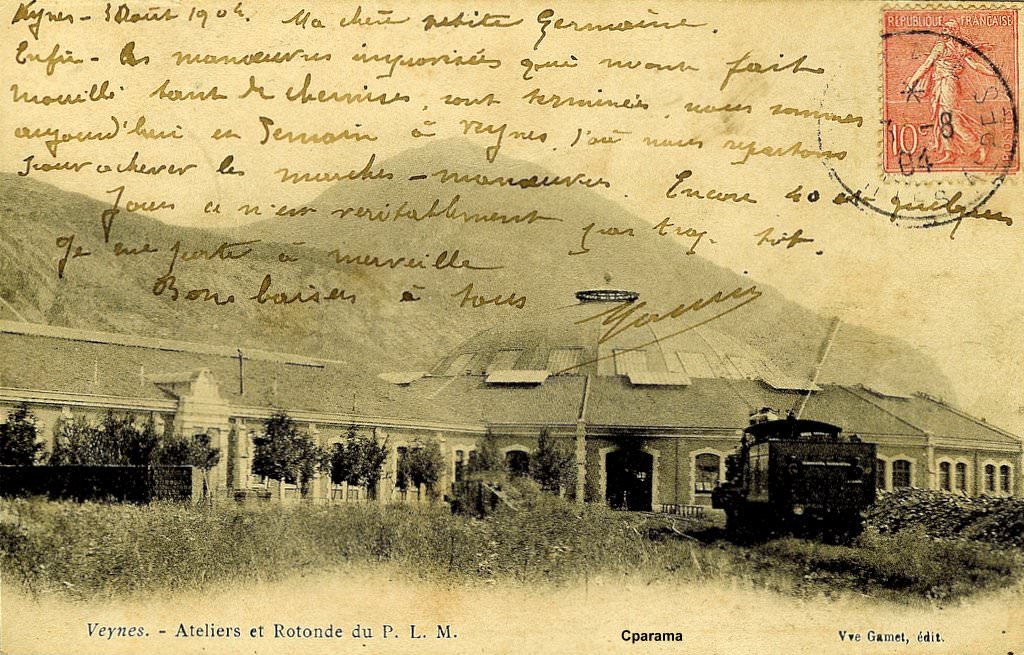 Veynes - 3 Août 1904. Ma chère petite Germaine.
Enfin - les manœuvres improvisées qui m'ont fait
mouillé tant de chemises, sont terminées, nous sommes
aujourd'hui en Demain à Veynes d'où nous repartons
pour achever les marches - manœuvres. Encore 40 et quelques
Jours ce n'est véritablement pas trop tôt.
Je me porte à merveille
Bons baisers à tous
RÉPUBLIQUE FRANÇAISE
10c
-8
04
ALPES
Veynes. - Ateliers et Rotonde du P. L. M.
Cparama
Vve Gamet, édit.